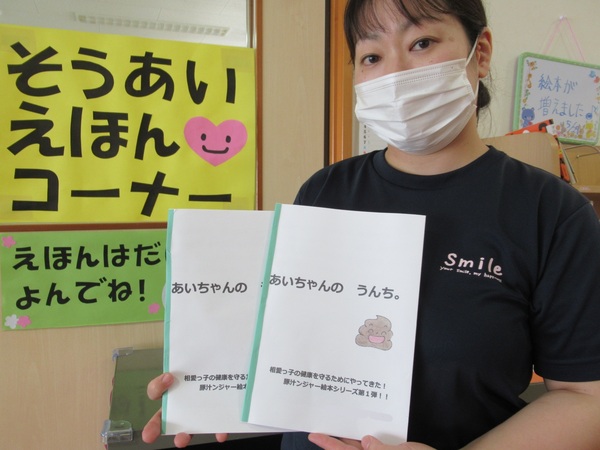 そうあい
えほん
コーナー
えほんはだ
よんでね!
絵本が
増えました
Smile
あいちゃんの
相愛っ子の健康を守るた
豚汁ンジャー絵本
あいちゃんの うんち。
相愛っ子の健康を守るためにやってきた!
豚汁ンジャー絵本シリーズ第1弾!!